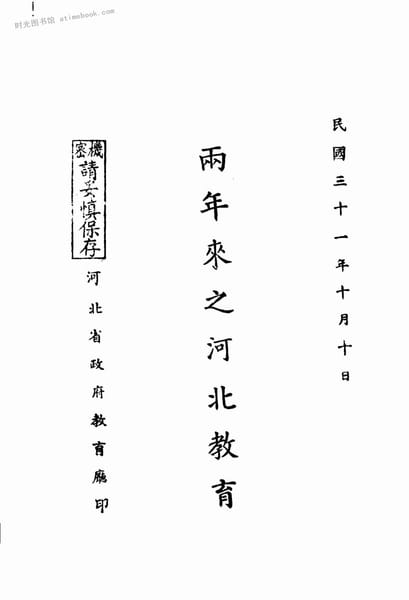 时光图书馆 atimebook.com
民國三十一年十月十日
兩年來之河北教育
機密
請妥慎保存
河北省政府教育廳印